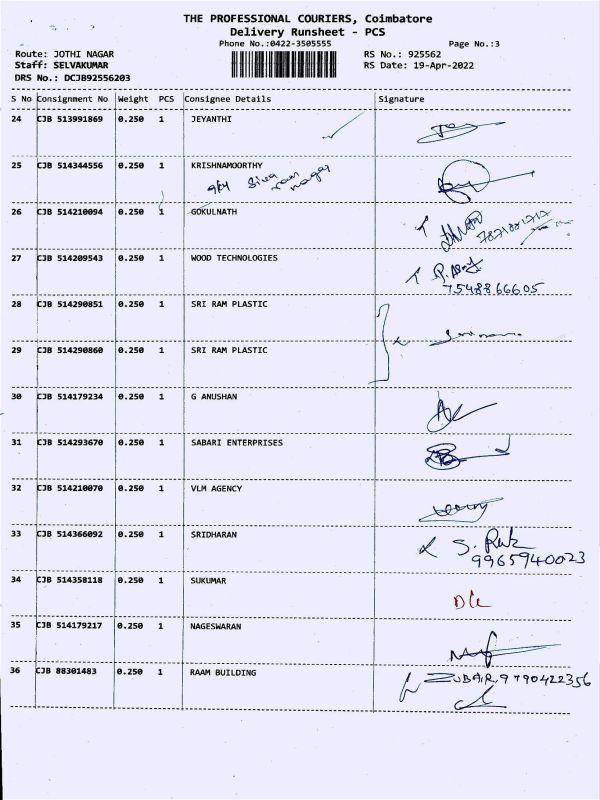 THE PROFESSIONAL COURIERS, Coimbatore
Delivery Runsheet - PCS
Phone No.:0422-3505555
Page No.:3
Route: JOTHI NAGAR
RS No.: 925562
Staff: SELVAKUMAR
RS Date: 19-Apr-2022
DRS No.: DCJ892556203
S No Consignment No Weight PCS Consignee Details Signature
24 CJB 513991869 0.250 1 JEYANTHI
25 CJB 514344556 0.250 1 KRISHNAMOORTHY
Siva ram nagar
26 CJB 514210094 0.250 1 GOKULNATH
27 CJB 514209543 0.250 1 WOOD TECHNOLOGIES
7548866605
28 CJB 514290851 0.250 1 SRI RAM PLASTIC
29 CJB 514290860 0.250 1 SRI RAM PLASTIC
30 CJB 514179234 0.250 1 G ANUSHAN
31 CJB 514293670 0.250 1 SABARI ENTERPRISES
32 CJB 514210070 0.250 1 VLM AGENCY
33 CJB 514366092 0.250 1 SRIDHARAN
9965940023
34 CJB 514358118 0.250 1 SUKUMAR
35 CJB 514179217 0.250 1 NAGESWARAN
36 CJB 88301483 0.250 1 RAAM BUILDING
ZUBAIR 9790422356